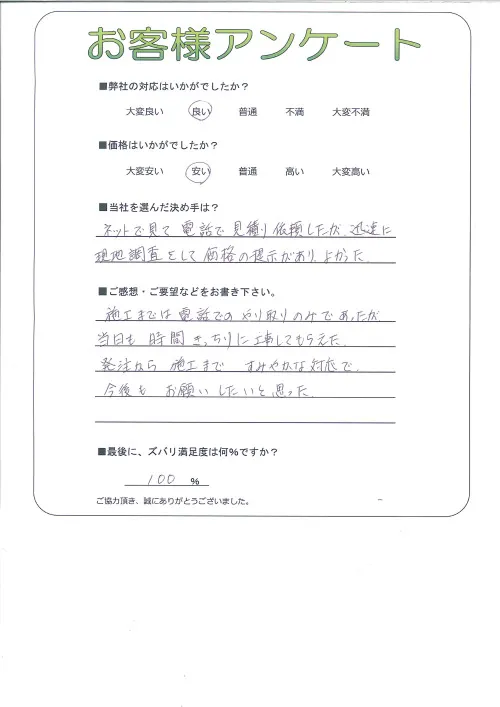 お客様アンケート
■弊社の対応はいかがでしたか？
大変良い 良い 普通 不満 大変不満
■価格はいかがでしたか？
大変安い 安い 普通 高い 大変高い
■当社を選んだ決め手は？
ネットで見て 電話で 見積り依頼したが、迅速に
現地調査をして 価格の提示があり、よかった。
■ご感想・ご要望などをお書き下さい。
施工までは 電話での やり取りのみであったが、
当日も 時間 きっちりに 工事してもらえた。
発注から 施工まで すみやかな対応で、
今後も お願いしたいと思った。
■最後に、ズバリ満足度は何%ですか？
100 %
ご協力頂き、誠にありがとうございました。